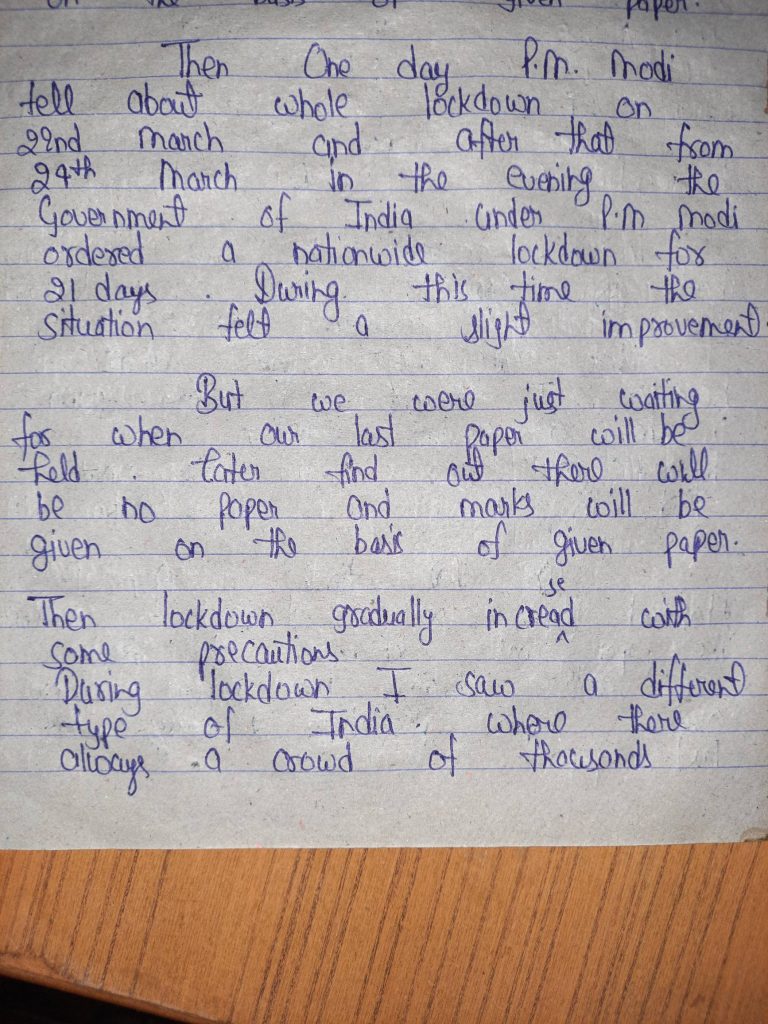 on the basis of given paper.
Then One day P.M. Modi
tell about whole lockdown on
22nd march and after that from
24th March in the evening the
Government of India under P.M modi
ordered a nationwide lockdown for
21 days . During this time the
situation felt a slight improvement.
But we were just waiting
for when our last paper will be
held . Later find out there will
be no paper and marks will be
given on the basis of given paper.
Then lockdown gradually increased with
some precautions.
During lockdown I saw a different
type of India . where there
always a crowd of thousands